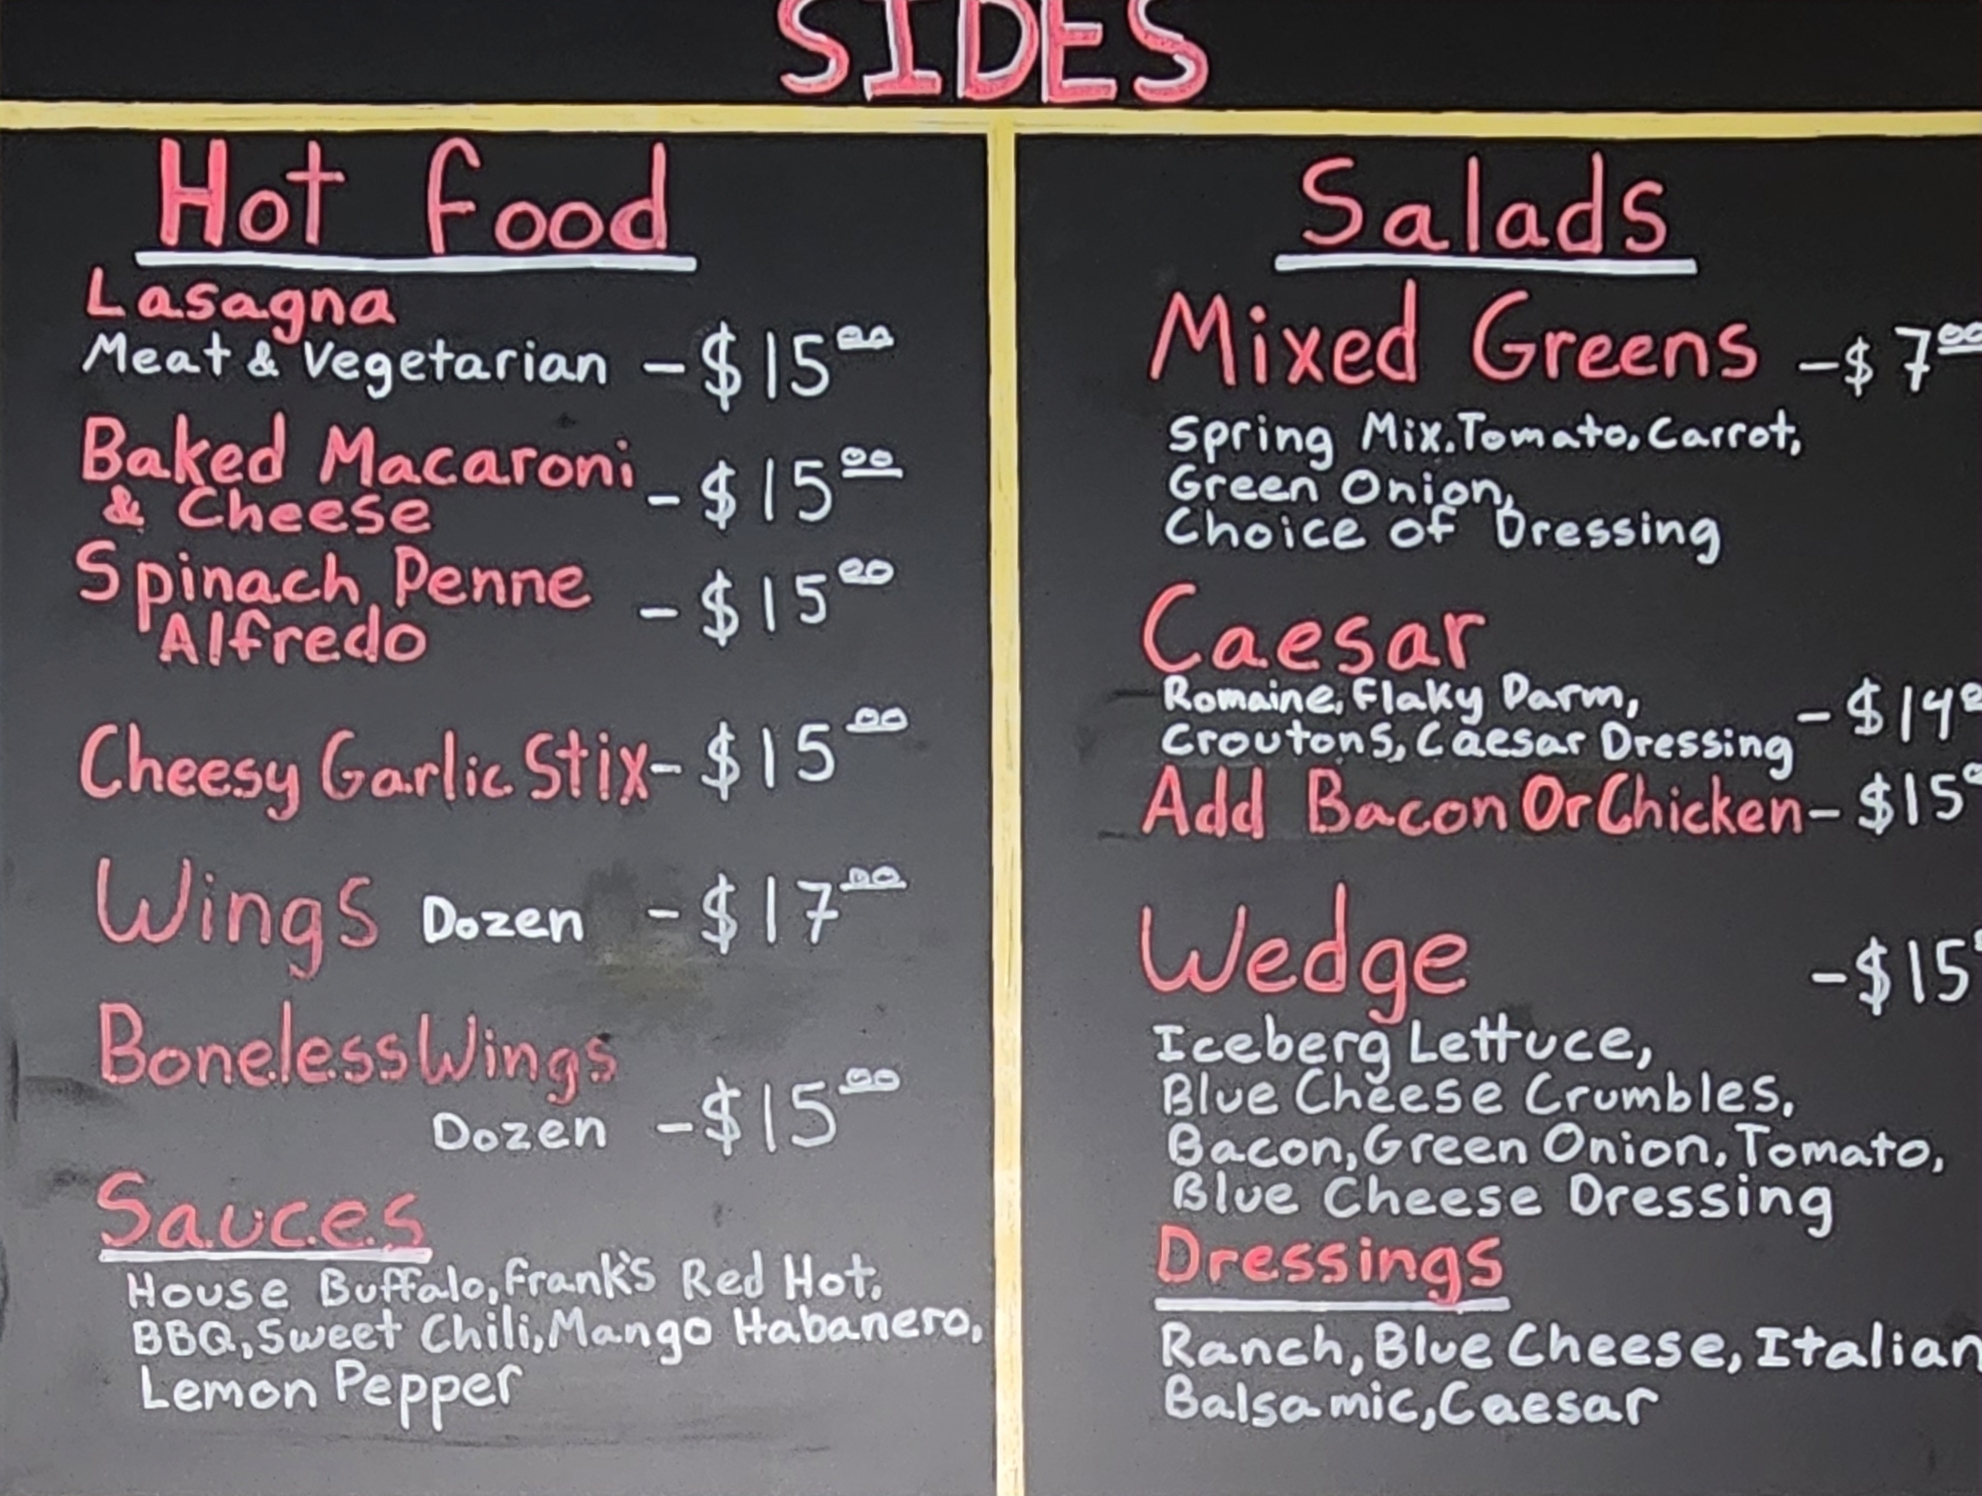 SIDES
Hot Food
Lasagna
Meat & Vegetarian - $15.00
Baked Macaroni
& Cheese - $15.00
Spinach Penne
Alfredo - $15.00
Cheesy Garlic Stix - $15.00
Wings Dozen - $17.00
Boneless Wings
Dozen - $15.00
Sauces
House Buffalo, Frank's Red Hot,
BBQ, Sweet Chili, Mango Habanero,
Lemon Pepper
Salads
Mixed Greens - $7.00
Spring Mix, Tomato, Carrot,
Green Onion,
Choice of Dressing
Caesar
Romaine, Flaky Parm,
Croutons, Caesar Dressing - $14
Add Bacon Or Chicken - $15
Wedge - $15
Iceberg Lettuce,
Blue Cheese Crumbles,
Bacon, Green Onion, Tomato,
Blue Cheese Dressing
Dressings
Ranch, Blue Cheese, Italian
Balsamic, Caesar